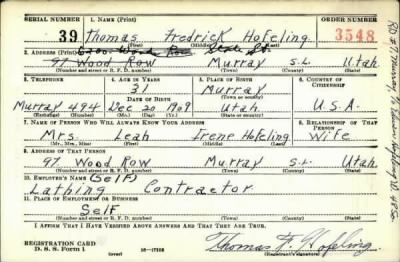 SERIAL NUMBER 1. NAME (Print) ORDER NUMBER
39 Thomas Fredrick Hofeling 3548
(First) (Middle) (Last)
2. ADDRESS (Print) State St.
97 Wood Row Murray S.L. Utah
(Number and street or R. F. D. number) (Town) (County) (State)
3. TELEPHONE 4. AGE IN YEARS 5. PLACE OF BIRTH 6. COUNTRY OF CITIZENSHIP
31 Murray
(Town or county)
DATE OF BIRTH
Murray 494 Dec 20 1909 Utah U.S.A.
(Exchange) (Number) (Mo.) (Day) (Yr.) (State or country)
7. NAME OF PERSON WHO WILL ALWAYS KNOW YOUR ADDRESS 8. RELATIONSHIP OF THAT PERSON
Mrs. Leah Irene Hofeling Wife
(Mr., Mrs., Miss) (First) (Middle) (Last)
9. ADDRESS OF THAT PERSON
97 Wood Row Murray S.L. Utah
(Number and street or R. F. D. number) (Town) (County) (State)
10. EMPLOYER'S NAME (Self)
Lathing Contractor
11. PLACE OF EMPLOYMENT OR BUSINESS
Self
(Number and street or R. F. D. number) (Town) (County) (State)
I AFFIRM THAT I HAVE VERIFIED ABOVE ANSWERS AND THAT THEY ARE TRUE.
REGISTRATION CARD
D. S. S. Form 1 (over) Thomas F. Hofeling
(Registrant's signature)